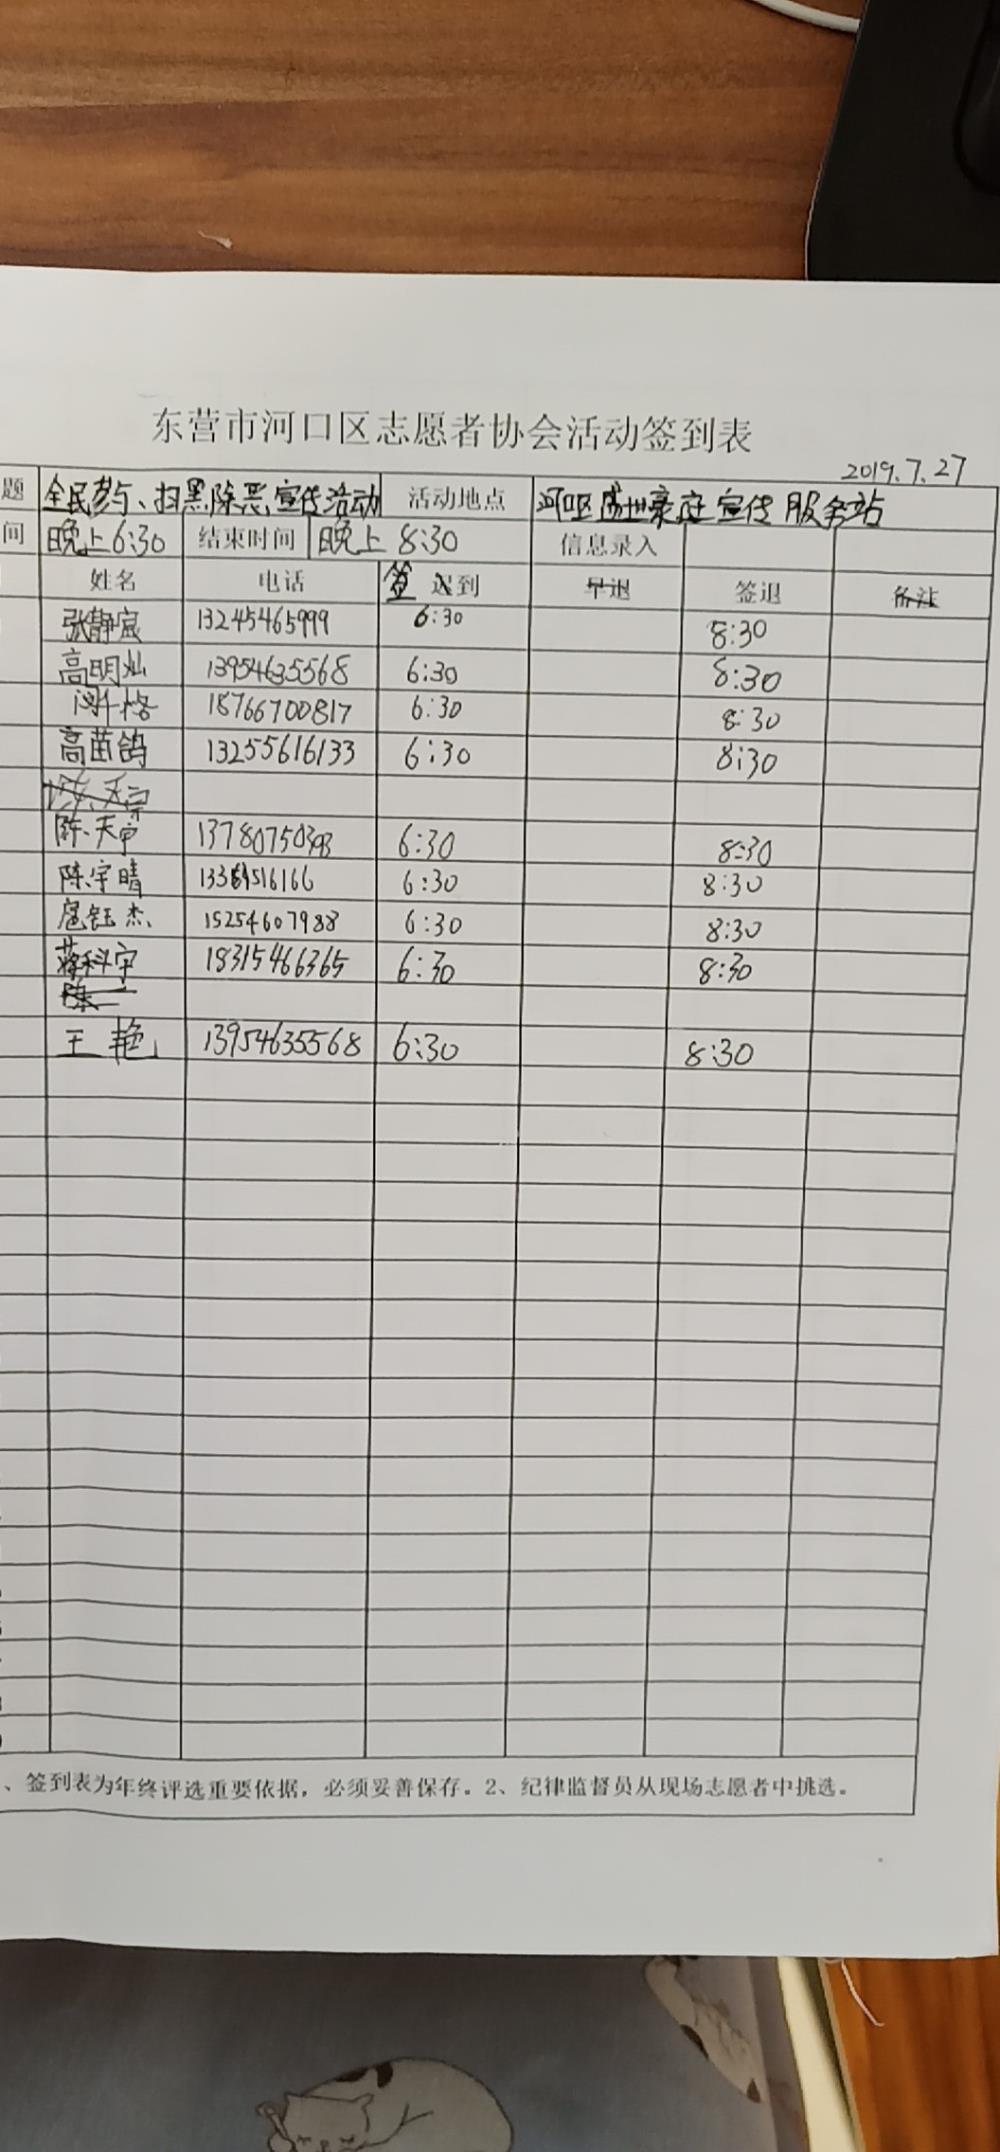 东营市河口区志愿者协会活动签到表
2019.7.27
题 全民参与、扫黑除恶宣传活动 活动地点 河口区盛世豪庭宣传服务站
间 晚上6:30 结束时间 晚上 8:30 信息录入
姓名 电话 签到 早退 签退 备注
张静宸 13245465999 6:30 8:30
高明灿 13954635568 6:30 8:30
18766700817 6:30 8:30
高苗鸽 13255616133 6:30 8:30
陈天宗
陈天 6:30 8:30
陈宇晴 6:30 8:30
扈钰杰 15254607988 6:30 8:30
蒋科宇 18315466365 6:30 8:30
王艳 13954635568 6:30 8:30
、签到表为年终评选重要依据，必须妥善保存。2、纪律监督员从现场志愿者中挑选。